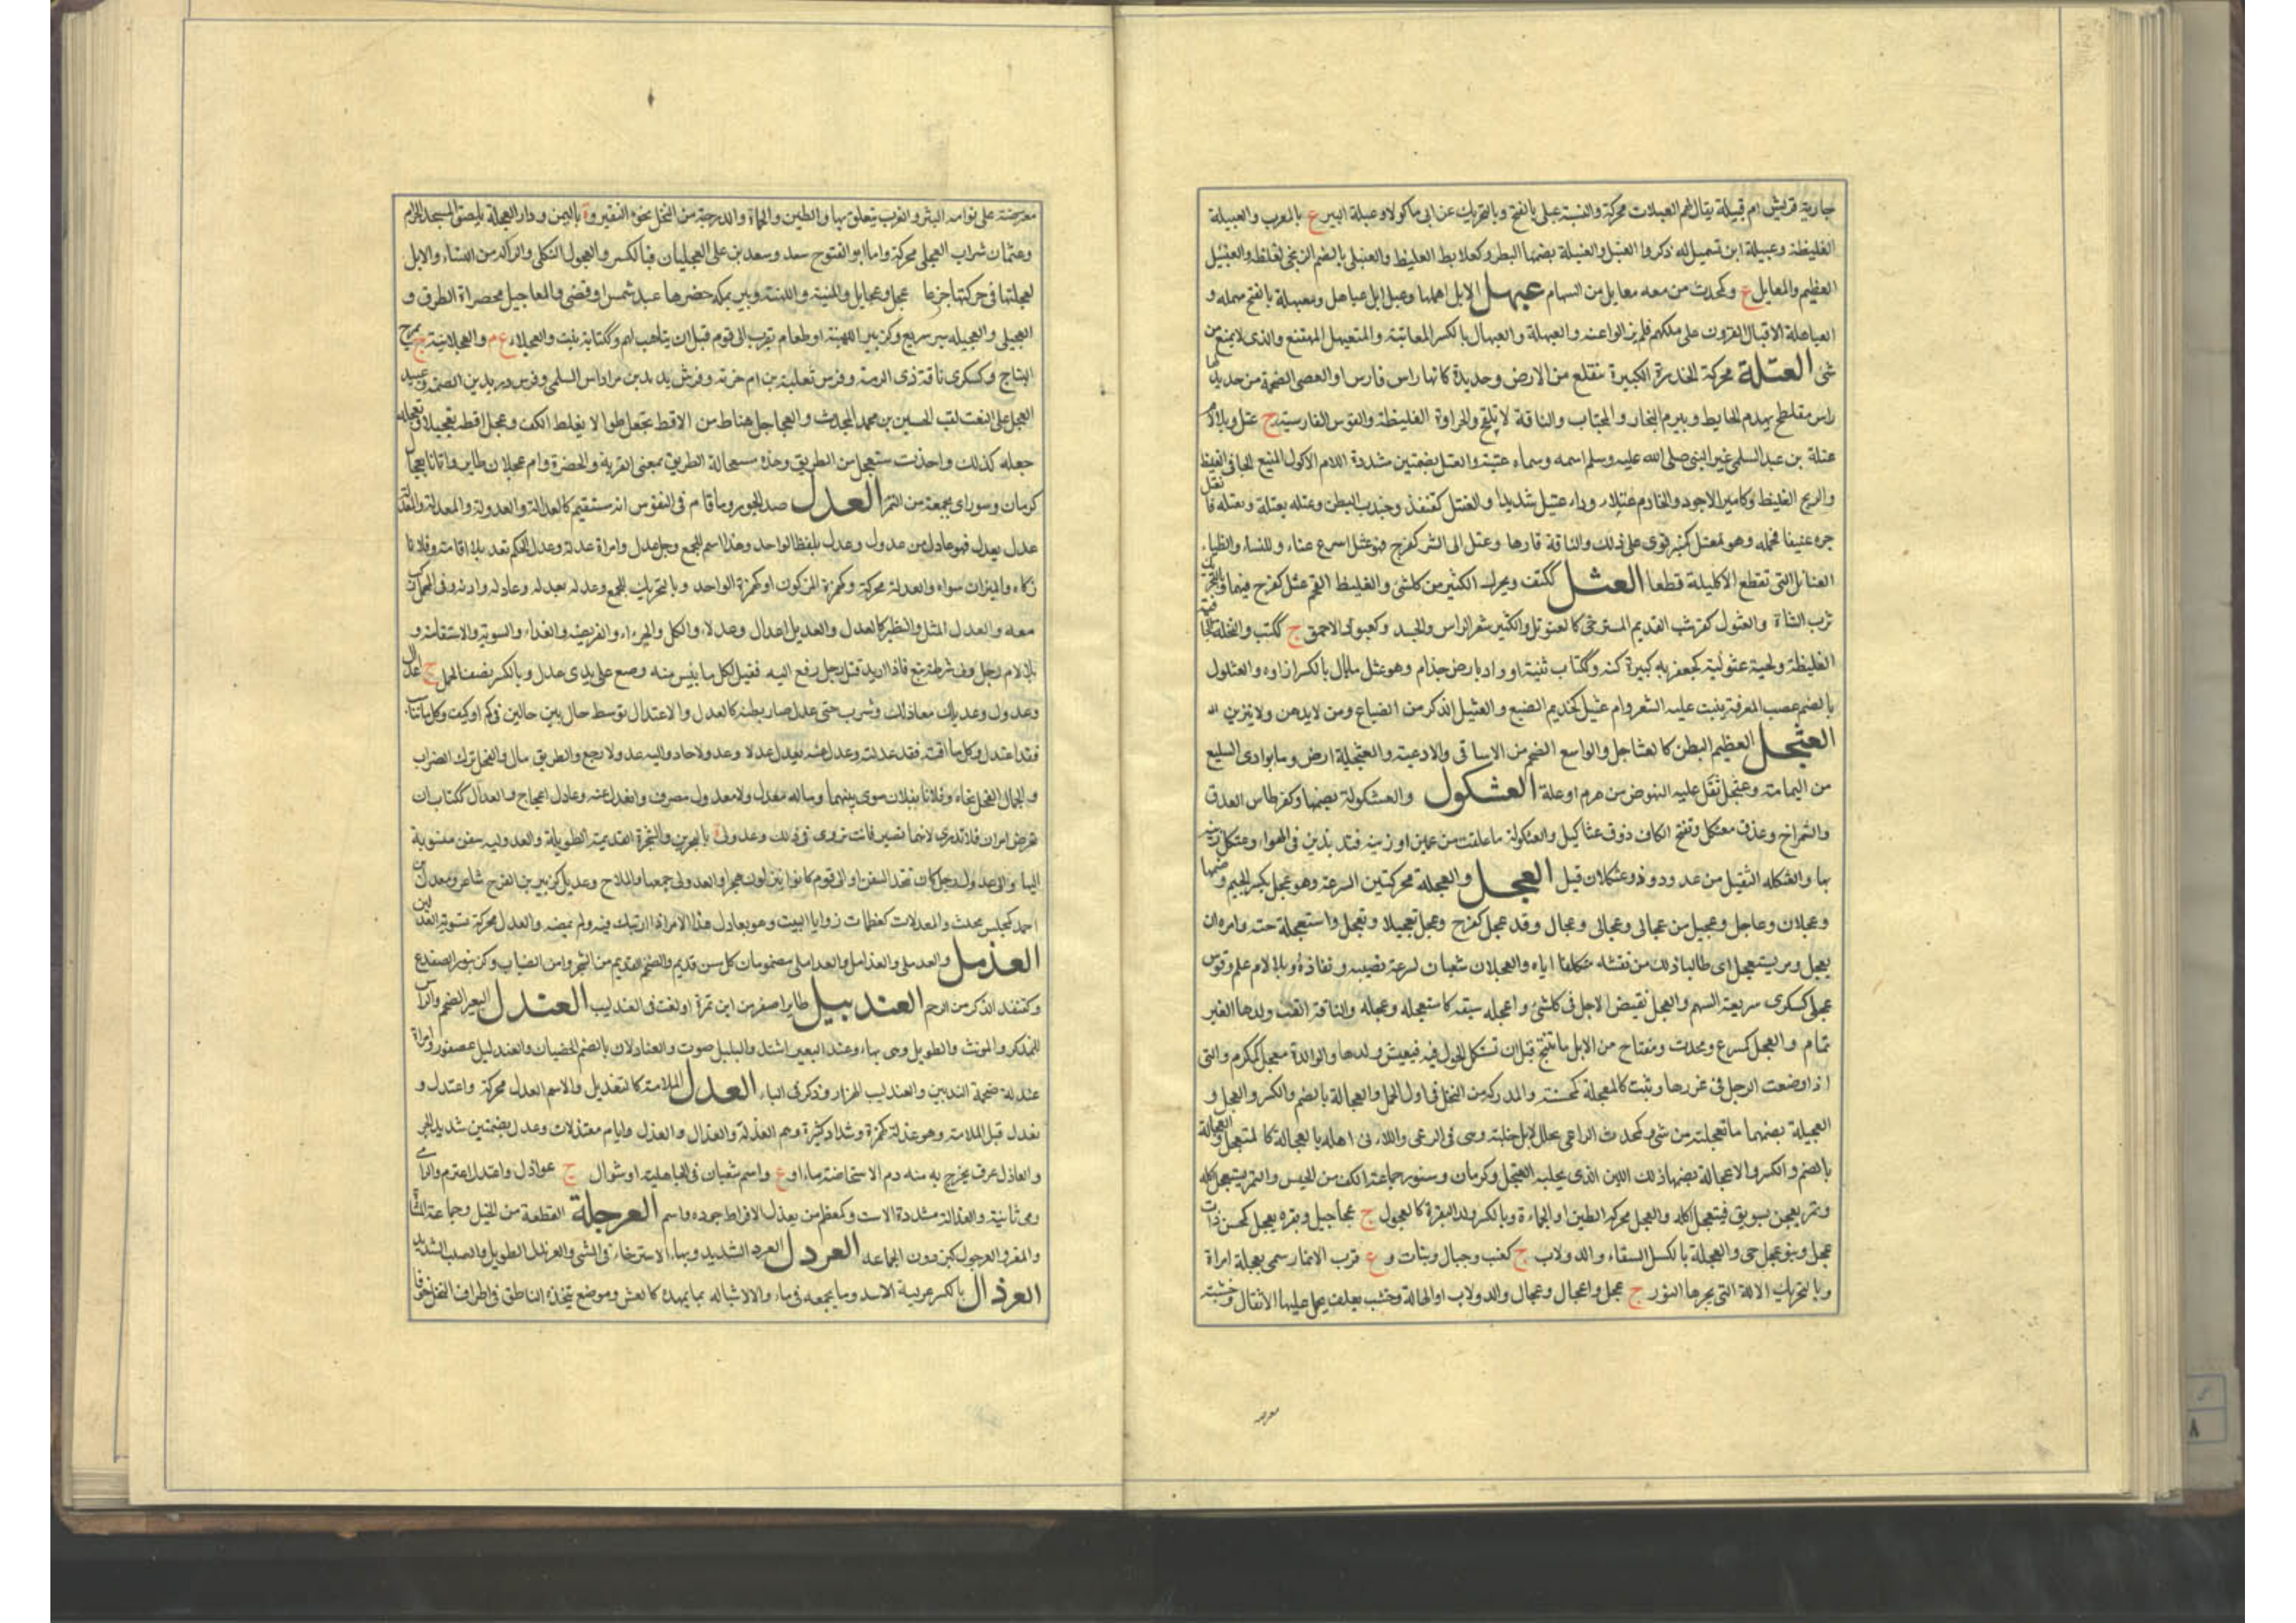 جارية قريش ام قبيلة يقال لهم العبلات محركة والنسبة عبلى بالفتح وبالتحريك عن ابى ماكولا وعبلة البير ع بالمغرب والعبيلة
الغليظة وعبيلة ابن تسميل له ذكر والعنبل والعنبلة بضمها البظر وكعلابط الغليظ والعنبلى بالضم الزنجى لغلظه والعنبيل
العظيم والمعابل ع وكمحدث من معه معابل من السهام عبهل الابل اهملها وعبل ابل عباهل ومعبهلة بالفتح مهملة و
العباهلة الاقيال المقرون على ملكهم فلم يزالوا عنه والعبهلة والعبهال بالكسر المعاتبة والمتعبهل الممتنع والذى لا يمنع من
شئ العتلة محركة المدرة الكبيرة تنقلع من الارض وحديدة كانها راس فاس او العصى الضخمة من حديد لها
راس مفلطح يهدم الحايط وبيرم النجار والمجتاب والناقة لا تلقح والهراوة الغليظة والقوس الفارسية ج عتل وبلا لام
عتلة بن عبد السلمى غير النبى صلى الله عليه وسلم اسمه وسماه عتبة والعتل بضمتين مشددة اللام الاكول المنيع الجافى الغليظ
والرمح الغليظ وكامير الاجير والخادم عتلاء وداء عتيل شديد والعنتل كقنفذ وجندب البظر وعتله يعتله ويعتله فانعتل
جره عنيفا فحمله وهو معتل كمنبر قوى على ذلك والناقة قادها وعتل الى الشر كفرح فهو عتل اسرع
التى تقطع الاكليلة قطعا العثل ككتف ويحرك الكثير من كل شئ والغليظ الفخم عثل كفرح فيهما
ثرب الشاة والعثول كقرشب الفدم المسترخى كالعثوثل والكثير شعر الراس والجسد وكصبور الاحمق ج ككتب والنخلة الجافية
الغليظة ولحية عثولية كجعفرية كبيرة كثة وككتاب ثنية او واد بارض جذام وهو عثل مال بالكسر ازاوه والعثلول
بالضم عصب المعرفة ينبت عليه الشعر وام عثيل كحذيم الضبع والعثيل الذكر من الضباع ومن لا يدهن ولا يتزين
العثجل العظيم البطن كالعثاجل والواسع الضخم من الاساقى والاوعية والعثجلية ارض وما بوادى السليع
من اليمامة وعثجل ثقل عليه النهوض من هرم او علة العثكول والعثكولة بضمها وكقرطاس العذق
والشمراخ وعذق معثكل وتفتح الكاف ذو عثاكيل والعثكولة ما علقت من عهن او زينة فتذبذبت فى الهواء وعثكل زينه
بها والعثكله الثقيل من عدو وذو عثكلان قيل العجل والعجلة محركتين السرعة وهو عجل بكسر الجيم وضمها
وعجلان وعاجل وعجيل من عجالى وعجالى وعجال وقد عجل كفرح وعجل تعجيلا وتعجل واستعجله حثه وامره ان
يعجل ومر يستعجل اى طالبا ذلك من نفسه متكلفا اياه والعجلان شعبان لسرعة نفاذه وبلا لام علم وقوس
عجلى كسكرى سريعة السهم والعجل نقيض الاجل فى كل شئ واعجله سبقه كاستعجله وعجله والناقة القت ولدها لغير
تمام والعجل كمسرع ومحدث ومفتاح من الابل ما تنتج قبل ان تستكمل الحول فيعيش ولدها والوالدة معجل كمكرم والتى
اذا وضعت الرجل فى غرزها وثبت كالمعجلة كمحسنة والمدركة من النخل فى اول الحمل والعجالة بالضم والكسر والعجل و
العجلة بضمهما ما تعجلته من شئ وكمحدث الراعى يحلب الابل حلبة وهى فى الرعى واللاتى اهله بالعجالة كالمتعجل والعجالة
بالضم والكسر والاعجالة بضمها ذلك اللبن الذى يجلبه المعجل وكرمان وسنور جماعة الكف من الحيس والتمر يستعجل اكله
وتمر يعجن بسويق فيتعجل اكله والعجل محركة الطين او الحماءة وبالكسر ولد البقرة كالعجول ج عجاجيل وبقرة معجل كمحسن ذات
عجل وبنو عجل حى والعجلة بالكسر السقاء والدولاب ج كعنب وجبال ونبات و ع قرب الانبار سمى بعجلة امراة
وبالتحريك الالة التى يجرها الثور ج عجل واعجال وعجال والدولاب او المحالة وخشب يؤلف يحمل عليها الاثقال وخشبة
معرضة
معرضة على نعامة البئر والغرب يتعلق بها والطين والحماة والدرجة من النخل نحو النقير و ة باليمن ودار العجلة بلصق المسجد الحرام
وعثمان شراب العجلى محركة واما ابو الفتوح سعد وسعد بن على العجليان فبالكسر والعجول الثكلى والواله من النساء والابل
لعجلتها فى حركتها جزعا عجل وعجايل والمنية واللهنة وبير بمكة حضرها عبد شمس او قصى والمعاجيل مختصرات الطرق و
العجيلى والعجيلة سير سريع وكزبير اللهنة او طعام يقرب الى قوم قبل ان يتاهب لهم وككتابة نبت والعجلاء ع م والعجلانية
النتاج وكسكرى ناقة ذى الرمة وفرس ثعلبة بن ام حزنة وفرس يزيد بن مرداس السلمى وفرس دريد بن الصمة وعبيد
العجل على النعت لقب الحسين بن محمد المحدث والعجاجيل هناط من الاقط تجعل طوالا بغلظ الكف وعجل اقطه تعجيلا وتعجله
جعله كذلك واخذت مستعجل من الطريق وهذه مستعجلة الطريق بمعنى القربة والحضرة وام عجلان طاير واتانا بعجال
كرمان وسور اى بجمعة من التمر العدل ضد الجور وما قام فى النفوس انه مستقيم كالعدالة والعدولة والمعدلة والمعدلة
عدل يعدل فهو عادل من عدول وعدل بلفظ الواحد وهذا اسم للجمع ورجل عدل وامراة عدلة وعدل الحكم تعديلا اقامه وفلانا
زكاه والميزان سواه والعدلة محركة وكهمزة المزكون او كهمزة للواحد وبالتحريك للجمع وعدله يعدله وعادله وازنه وفى المحمل ركب
معه والعدل المثل والنظير كالعدل والعديل اعدال وعدلاء والكيل والجزاء والفريضة والفداء والسوية والاستقامة و
بلا لام رجل ولى شرطة تبع فاذا اريد قتل رجل دفع اليه فقيل لكل ما يئس منه وضع على يدى عدل وبالكسر نصف الحمل ج اعدال
وعدول وعديلك معادلك وشرب حتى عدل صار بطنه كالعدل والاعتدال توسط حال بين حالين فى كم او كيف وكل ما تناسب
فقد اعتدل وكل ما اقمته فقد عدلته وعدل عنه يعدل عدلا وعدولا حاد واليه عدولا رجع والطريق مال والفحل ترك الضراب
والجمال الفحل نحاه وفلانا بفلان سوى بينهما وماله معدل ولا معدول مصرف وانعدل عنه وعادل اعوج والعدال ككتاب ان
تعرض امران فلا تدرى لايهما تصير فانت تروى فى ذلك وعدولى ة بالبحرين والشجرة القديمة الطويلة والعدولية سفن منسوبة
اليها والى عدول رجل كان يتخذ السفن او الى قوم كانوا ينزلون هجر والعدولى جمعها والملاح وعديل كزبير بن الفرخ شاعر ومعدل بن
احمد كمجلس محدث والمعدلات كمعظمات زوايا البيت وهو يعادل هذا الامر اذا ارتبك فيه ولم يمضه والعدل محركة تسوية العدلين
العدمل والعدملى والعدامل والعداملى مضمومات كل مسن قديم والضخم القديم من الشجر ومن الضباب وكزنبور الضفدع
وكقنفذ الذكر من الرخم العندبيل طاير اصغر من ابن تمرة او لغة فى العندليب العندل البعير الضخم الراس
للمذكر والمونث والطويل وهى بهاء وعندل البعير اشتد والبلبل صوت والعنادلان بالضم الخصيان والعندليل عصفور وامراة
عندلة ضخمة الثديين والعندليب الهزار وذكر فى الباء العذل الملامة كالتعذيل والاسم العذل محركة واعتذل و
تعذل قبل الملامة وهو عذلة كهمزة وشداد كثيره وهم العذلة والعذال والعذل وايام معتذلات وعذل بضمتين شديد الحر
والعاذل عرق يخرج به منه دم الاستحاضة ماء او ع واسم شعبان فى الجاهلية او شوال ج عواذل واعتذل اعتزم والرامى
رمى ثانية والعذالة مشددة الاست وكمعظم من يعذل لافراط جوده واسم العرجلة القطعة من الخيل وجماعة المشاة
والمفر والعرجول كبرذون الجماعة العردل العرد الشديد وبهاء الاسترخاء فى المشى والعرندل الطويل والصلب الشديد
العرزال بالكسر عريسة الاسد وما يجمعه فى ماواه لاشباله مما يمهده كالعش وموضع يتخذه الناطق فى اطراف النخل خوفا